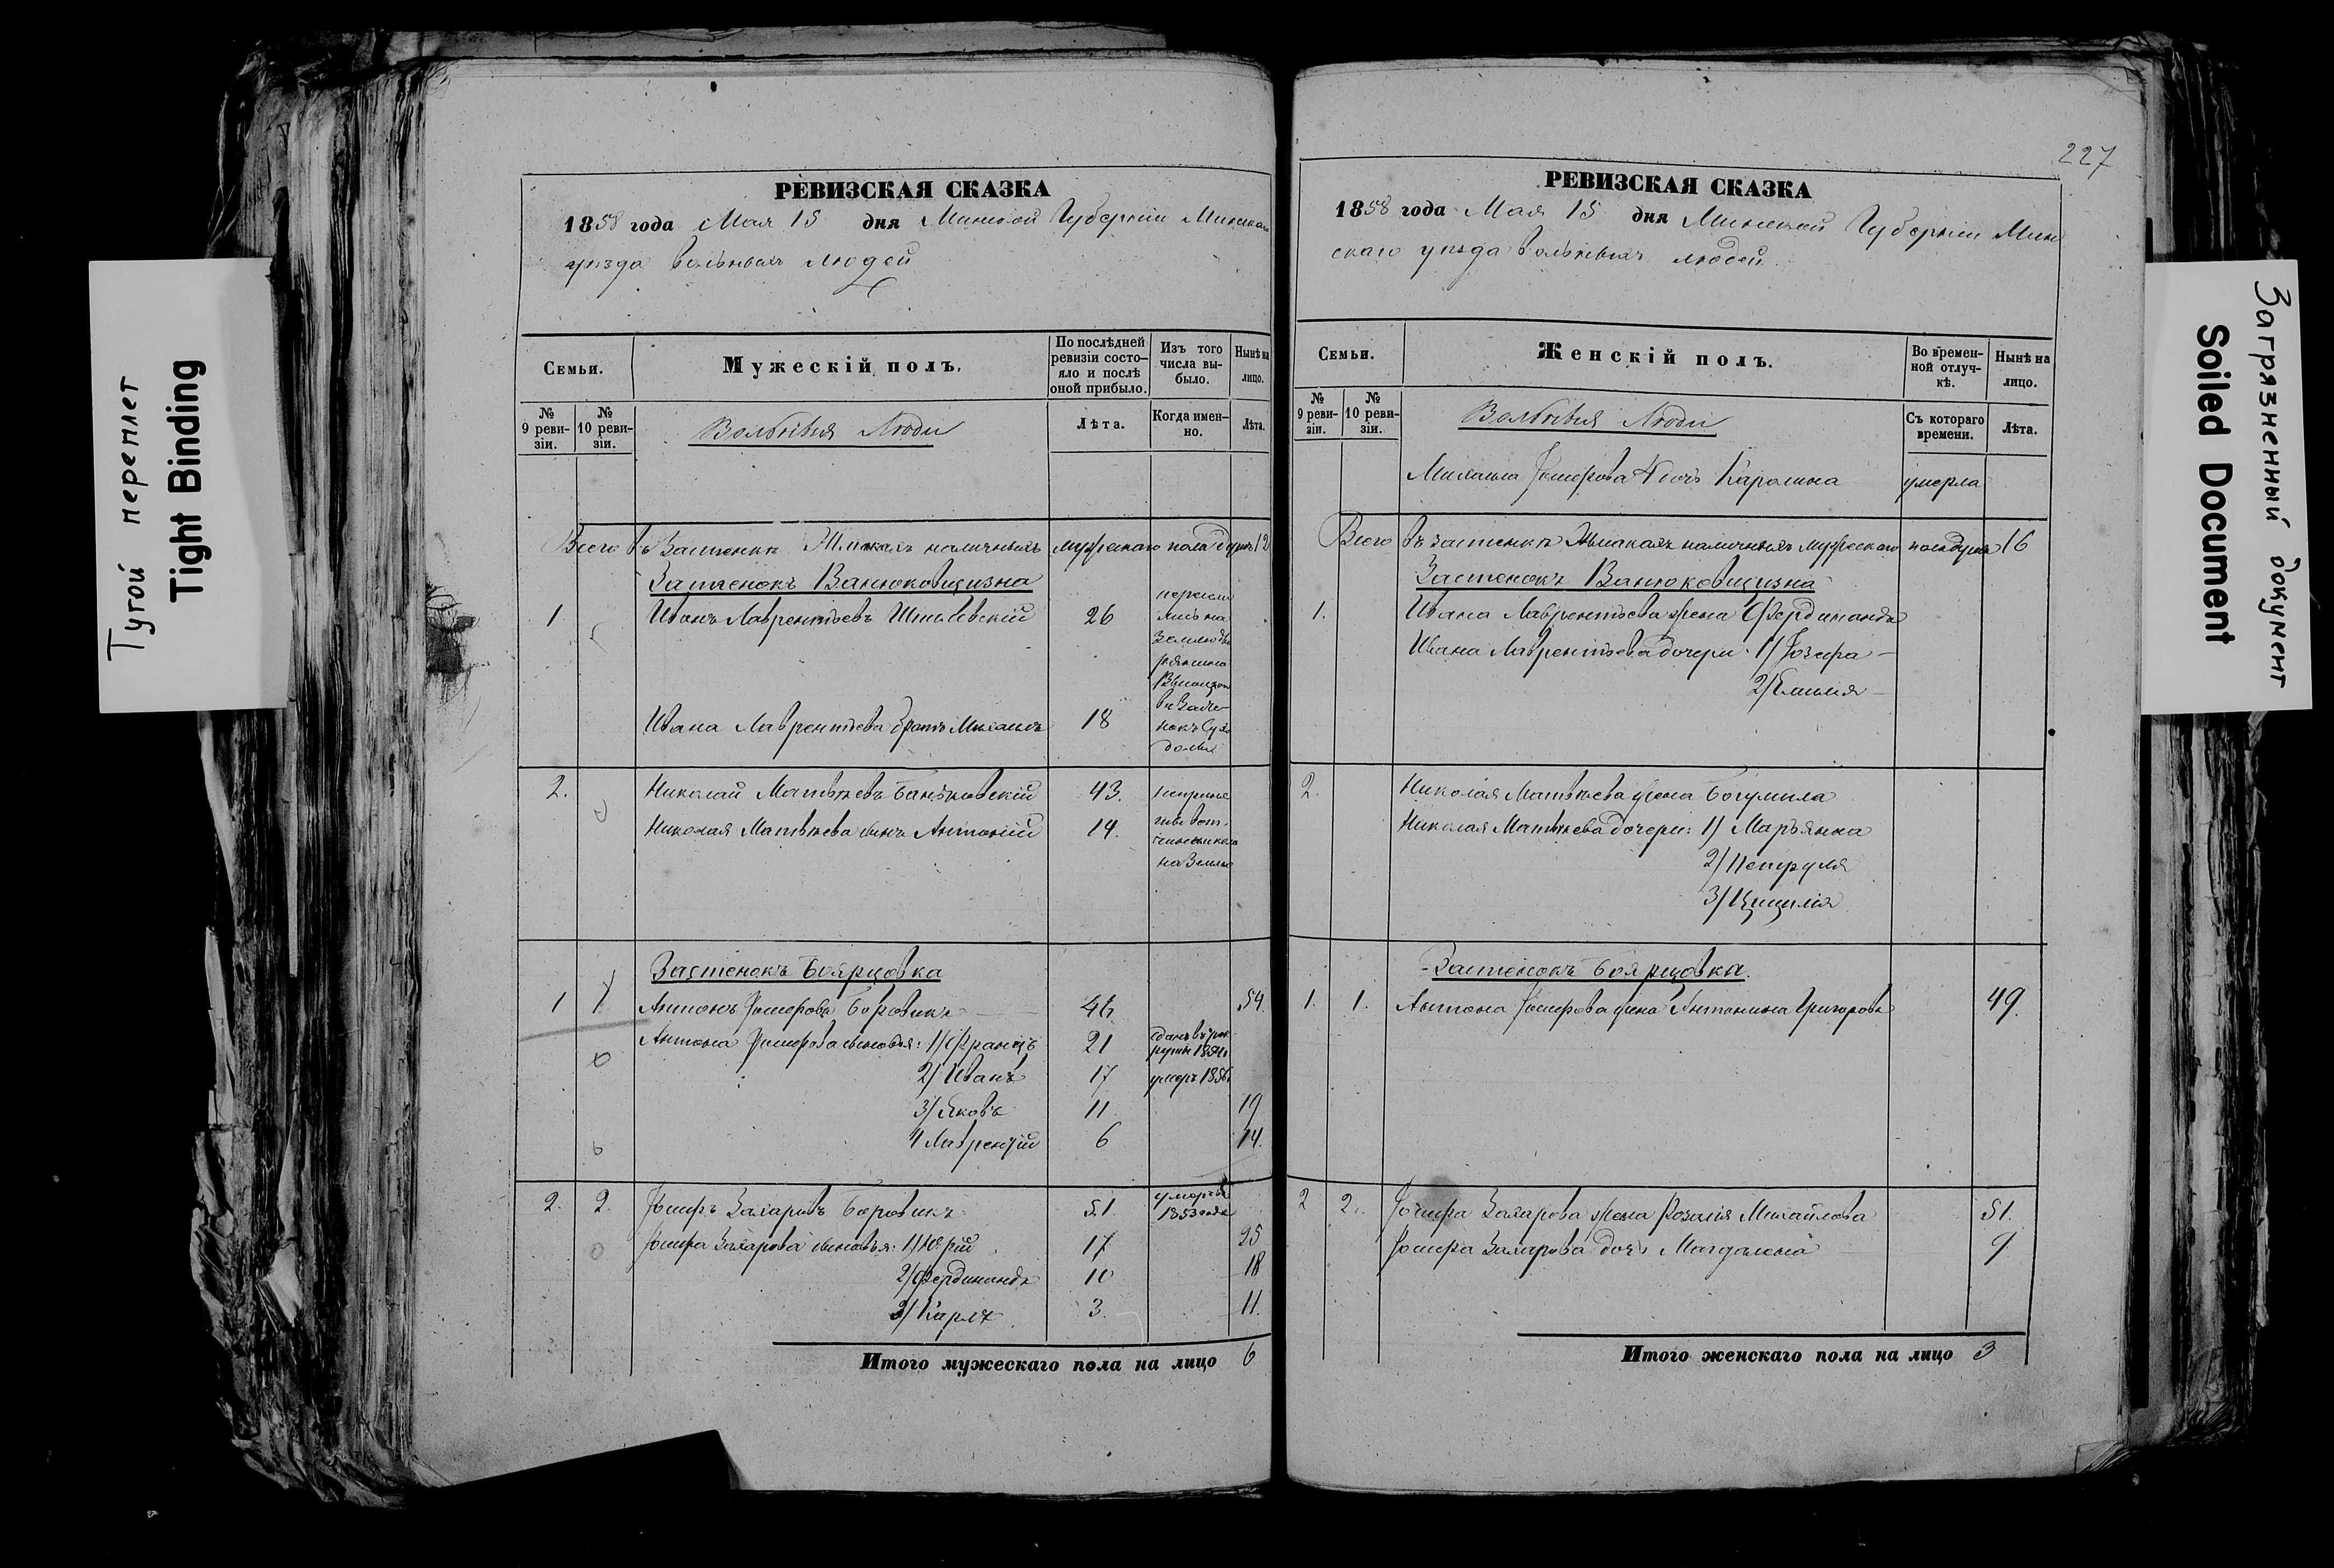 Тугой переплет
Tight Binding
РЕВИЗСКАЯ СКАЗКА
1858 года Мая 15 дня Минской Губернии Минскаго
уѣзда вольныхъ людей
Семьи.
Мужескій полъ.
По послѣдней ревизіи состо-
яло и послѣ
оной прибыло.
Изъ того числа вы-
было.
Нынѣ на
лицо.
№ 9 реви-
зіи.
№ 10 реви-
зіи.
Вольные Люди
Лѣта.
Когда имен-
но.
Лѣта.
Всего въ Застенкѣ наличныхъ мужескаго пола душъ 12
Застенокъ Ванюковщизна
1 Иванъ Лаврентьевъ 26
Ивана Лаврентьева братъ Михаилъ 18
2. Николай Матвѣевъ Баньковскій 43.
Николая Матвѣева сынъ Антоній 14.
на Землю
Застенокъ Боярцовка
1 1 Антонъ Іосифовъ Боровикъ 46 54.
Антона Іосифова сыновья: 1/ Францъ 21 сданъ въ рек-
руты 1854г
2/ Иванъ 17 умеръ 1856
3/ Яковъ 11 19
4 Лаврентій 6 14.
2. 2. Іосифъ Захаровъ Боровикъ 51 умеръ въ
1853 годѣ
Іосифа Захарова сыновья: 1/ Юрій 17 25
2/ Фердинандъ 10 18
3/ Карлъ 3 11.
Итого мужескаго пола на лицо 6
227
РЕВИЗСКАЯ СКАЗКА
1858 года Мая 15 дня Минской Губерніи Мин
скаго уѣзда вольныхъ людей
Семьи.
Женскій полъ.
Во времен-
ной отлуч-
кѣ.
Нынѣ на
лицо.
№ 9 реви-
зіи.
№ 10 реви-
зіи.
Вольные Люди
Съ котораго
времени.
Лѣта.
Михаила Іосифова 4 дочь Каролина умерла
Всего въ застенкѣ наличныхъ душъ 16
Застенокъ Ванюковщизна
1. Ивана Лаврентьева жена Фердинанда
Ивана Лаврентьева дочери: 1/ Іозефа
2/ Емилия
2. Николая Матвѣева жена Богумила
Николая Матвѣева дочери: 1) Марьянна
2/ Петруля
3/ Цицилія
Застенокъ Боярцовка.
1. 1. Антона Іосифова жена Антонина Григорова 49.
2 2. Іосифа Захарова жена Розалія Михайлова 51.
Іосифа Захарова дочь Магдалена 9.
Итого женскаго пола на лицо 3
Загрязненный документ
Soiled Document